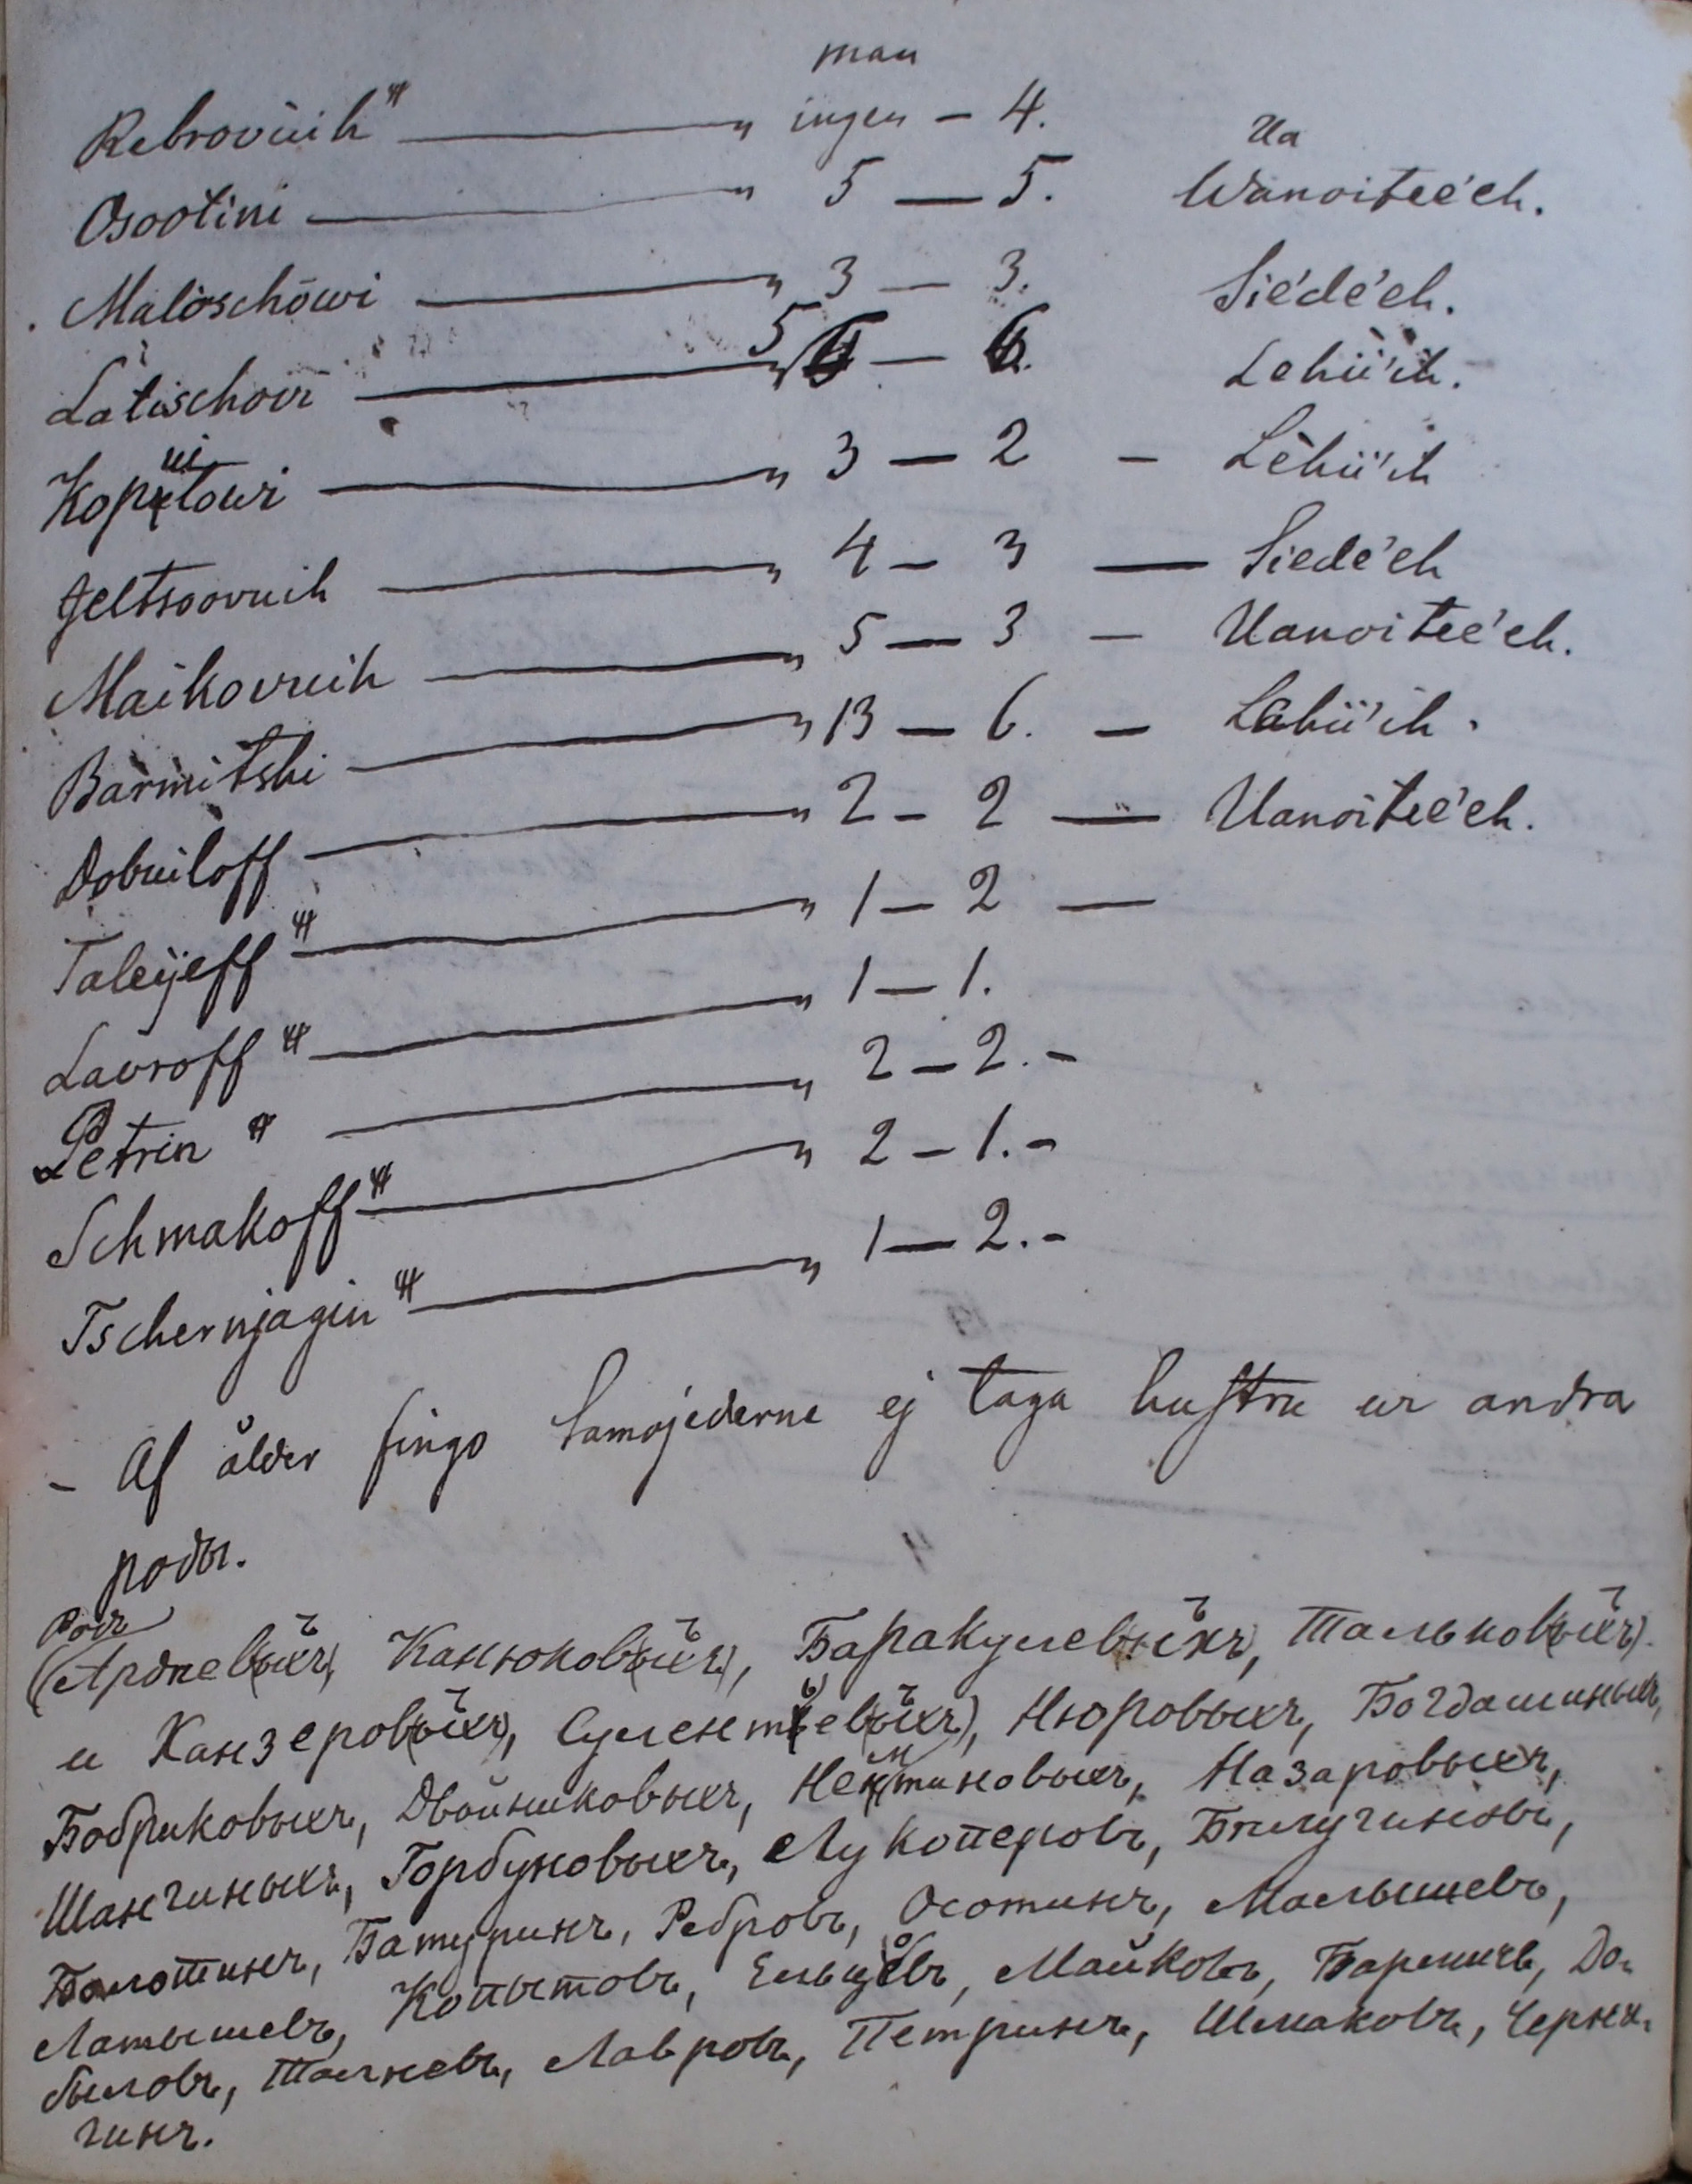 man
Rebrovuih # — „ ingen — 4.
Osootini — „ 5 — 5. Wanoitee'eh.
Ua
Malöschöwi — „ 3 — 3. Sie'de'eh.
Latischovi — „ 5 — 6. Lehü'ih.
Kopuitowi — „ 3 — 2 — Lehü'ih
Jeltsoovuih — „ 4 — 3 — Siede'eh
Maikovuih — „ 5 — 3 — Uanoitee'eh.
Barmitshi — „ 13 — 6. — Lahü'ih.
Dobuiloff — „ 2 — 2 — Uanoitee'eh.
Taleijeff # — „ 1 — 2 —
Lavroff # — „ 1 — 1.
Petrin # — „ 2 — 2. —
Schmakoff # — „ 2 — 1. —
Tschernjagin # — „ 1 — 2. —
— Af ålder fingo Samojederne ej taga hustru ur andra
роды.
Родъ
(Ардеев(ы)хъ, Канюков(ы)хъ), Баракулев(ы)хъ, Тальков(ы)хъ).
и Канзеров(ы)хъ, Сулентьев(ы)хъ), Нюровыхъ, Богдашиныхъ,
Бобриковыхъ, Двойниковыхъ, Немтиновыхъ, Назаровыхъ,
Шангиныхъ, Горбуновыхъ, Лукоперовъ, Билугиновъ,
Болотинъ, Батуринъ, Ребровъ, Осотинъ, Малышевъ,
Латышевъ, Копытовъ, Ельцовъ, Майковъ, Бармичь, До-
быловъ, Талеевъ, Лавровъ, Петринъ, Шмаковъ, Черня-
гинъ.